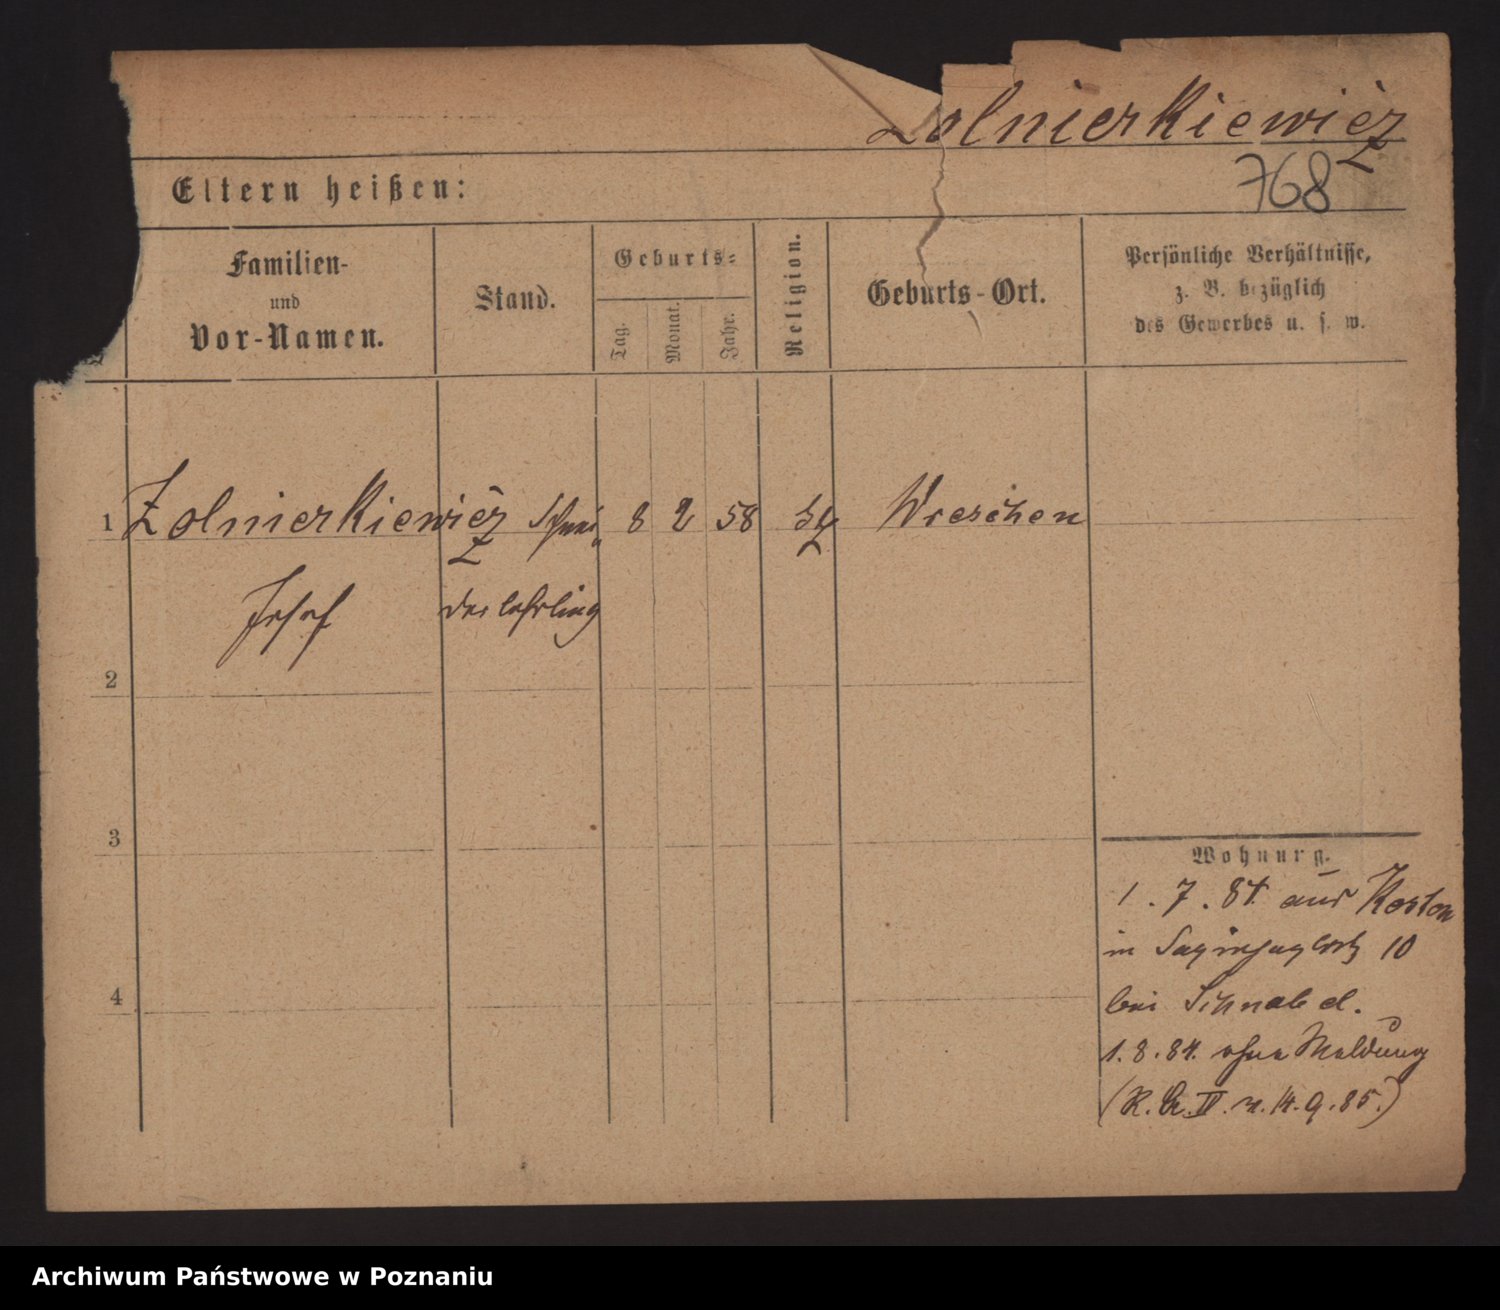 Zolnierkiewicz
768
Eltern heißen:
Familien-
und
Vor-Namen.
Stand.
Geburts-
Tag.
Monat.
Jahr.
Religion.
Geburts-Ort.
Persönliche Verhältnisse,
z. B. bezüglich
des Gewerbes u. s. w.
1 Zolnierkiewicz Schnei 8 2 58 Wreschen
Josef derlehrling
2
3
4
Wohnung.
1. 7. 84 aus Kosten
in 10
bei Schnabel.
1. 8. 84. ohne Meldung
(R. IV. v. 14. 9. 85.)
Archiwum Państwowe w Poznaniu